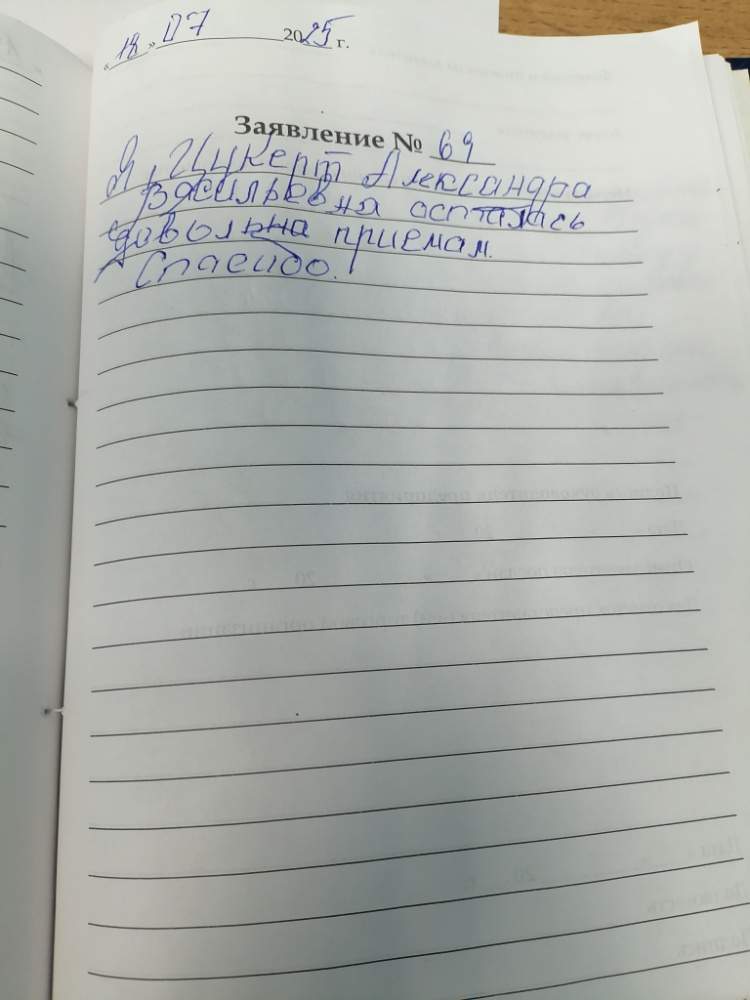 « 18 » 07 2025 г.
Заявление № 69
Я, Цукерт Александра
Васильевна осталась
довольна приемам.
Спасибо.